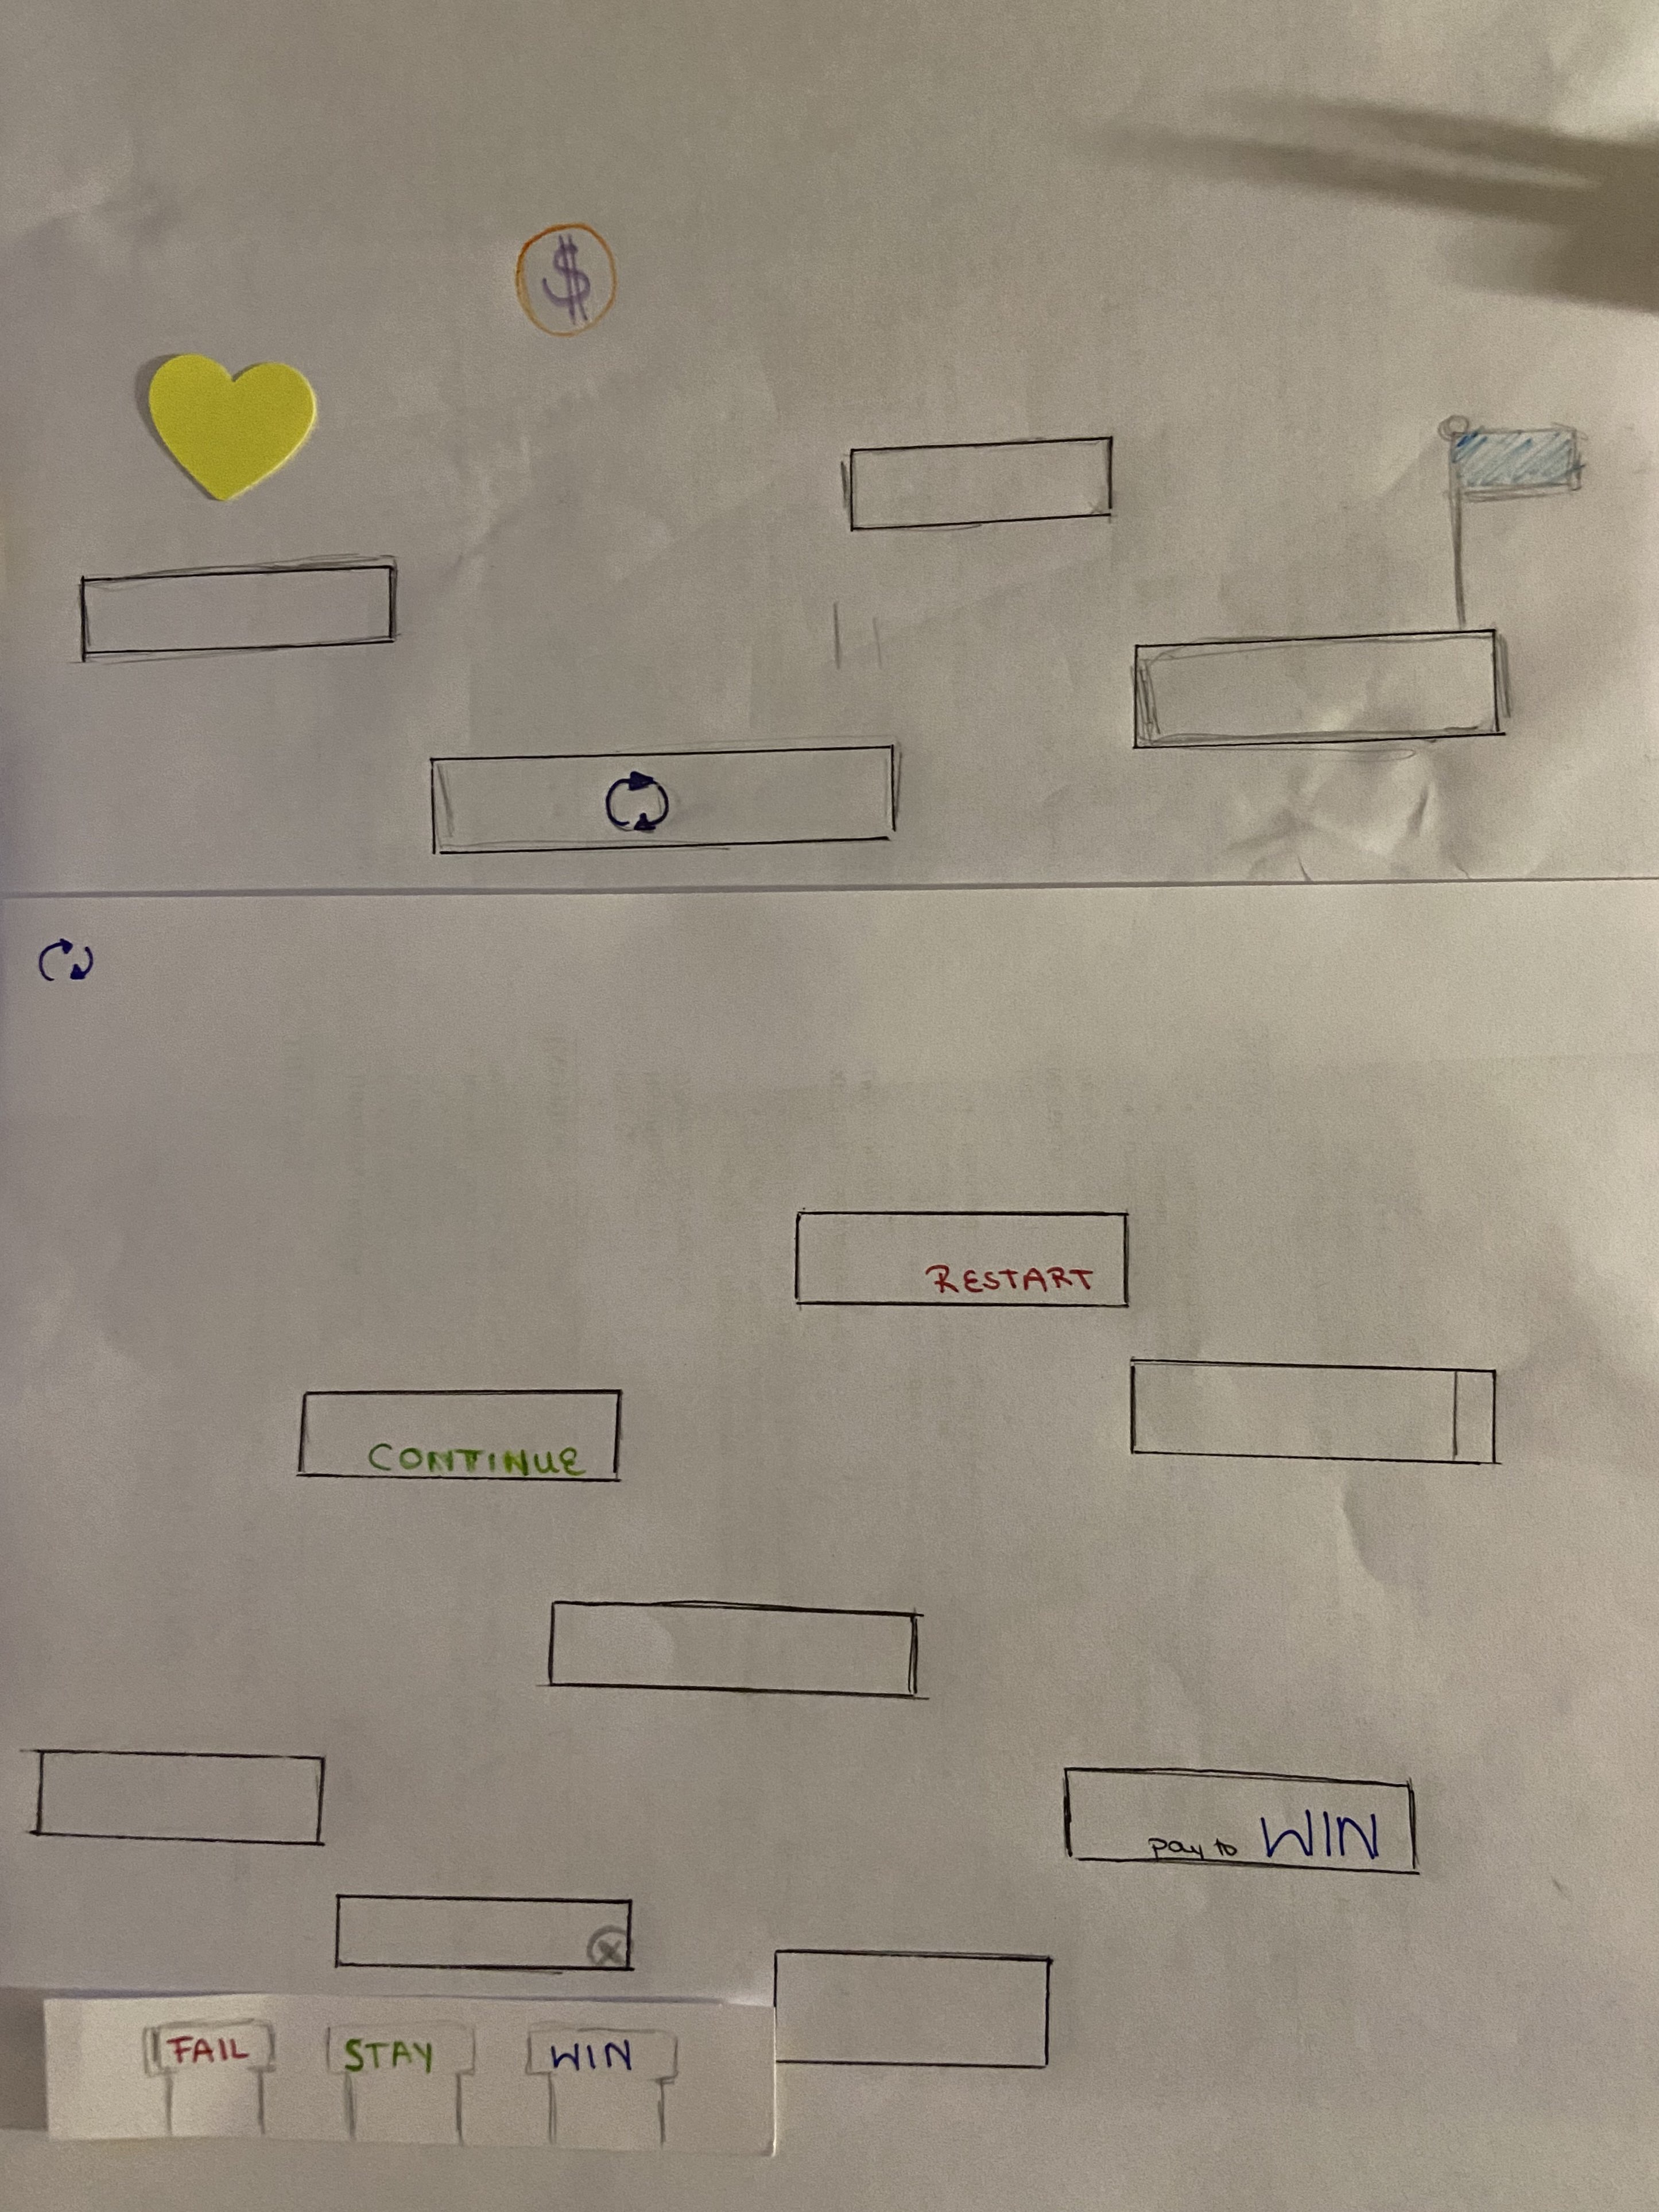 $
RESTART
CONTINUE
pay to WIN
FAIL STAY WIN